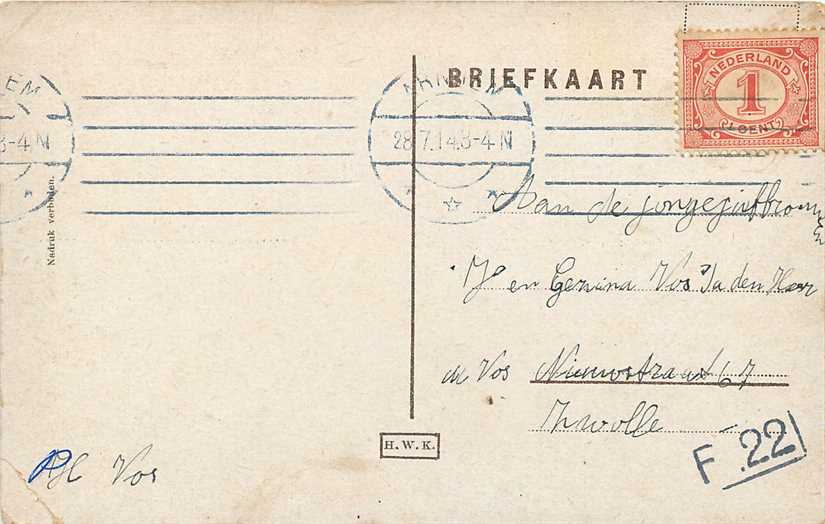 BRIEFKAART
NEDERLAND
1
CENT
ARNHEM
28.7.14.3-4 N
EM
3-4 N
Nadruk verboden.
Aan de jongejuffrouw
en Gerzina Vos Ja den Heer
Vos Nieuwstraat 67
Zwolle
H.W.K.
F 22
Vos